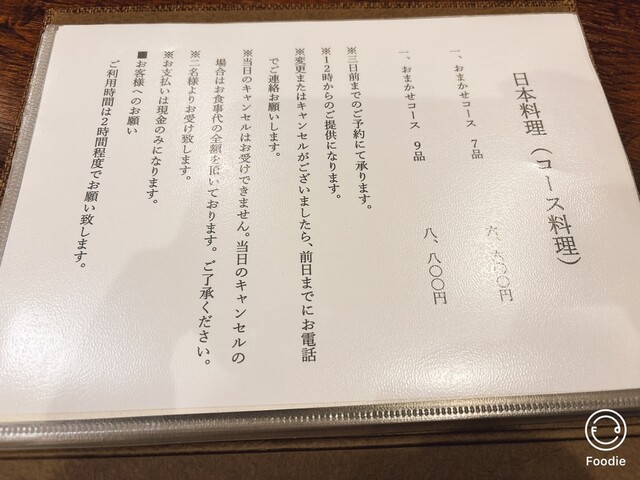 日本料理（コース料理）
一、おまかせコース　7品　六、六〇〇円
一、おまかせコース　9品　八、八〇〇円
※三日前までのご予約にて承ります。
※12時からのご提供になります。
※変更またはキャンセルがございましたら、前日までにお電話
でご連絡お願いします。
※当日のキャンセルはお受けできません。当日のキャンセルの
場合はお食事代の全額を頂いております。ご了承ください。
※二名様よりお受け致します。
※お支払いは現金のみになります。
■お客様へのお願い
ご利用時間は2時間程度でお願い致します。
Foodie